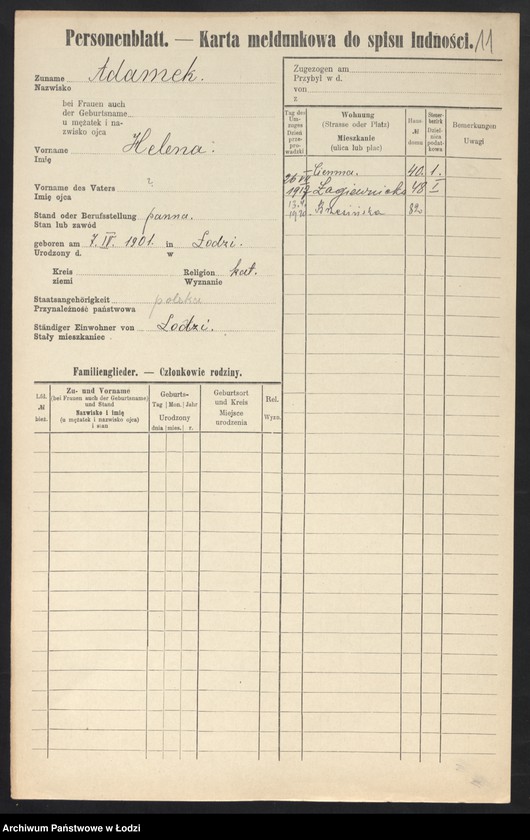 Personenblatt. — Karta meldunkowa do spisu ludności. 11
Zuname Adamek.
Nazwisko
bei Frauen auch
der Geburtsname
u mężatek i na-
zwisko ojca
Vorname Helena.
Imię
Vorname des Vaters ?
Imię ojca
Stand oder Berufsstellung panna.
Stan lub zawód
geboren am 7. IV. 1901. in Łodzi.
Urodzony d. w
Kreis Religion kat.
ziemi Wyznanie
Staatsangehörigkeit polska
Przynależność państwowa
Ständiger Einwohner von Łodzi.
Stały mieszkaniec
Familienglieder. — Członkowie rodziny.
Lfd. № bież.
Zu- und Vorname
(bei Frauen auch der Geburtsname)
und Stand
Nazwisko i imię
(u mężatek i nazwisko ojca)
i stan
Geburts-
Tag | Mon. | Jahr
Urodzony
dnia | mies. | r.
Geburtsort
und Kreis
Miejsce
urodzenia
Rel.
Wyzn.
Zugezogen am
Przybył w d.
von
z
Tag der
Um-
zuges
Dzień
prze-
prowadzki
Wohnung
(Strasse oder Platz)
Mieszkanie
(ulica lub plac)
Haus-
№
domu
Steuer-
bezirk
Dziel-
nica
podat-
kowa
Bemerkungen
Uwagi
Ciemna. 40. 1.
Łagiewnicka 48 I
1920 Brzezińska 82
Archiwum Państwowe w Łodzi